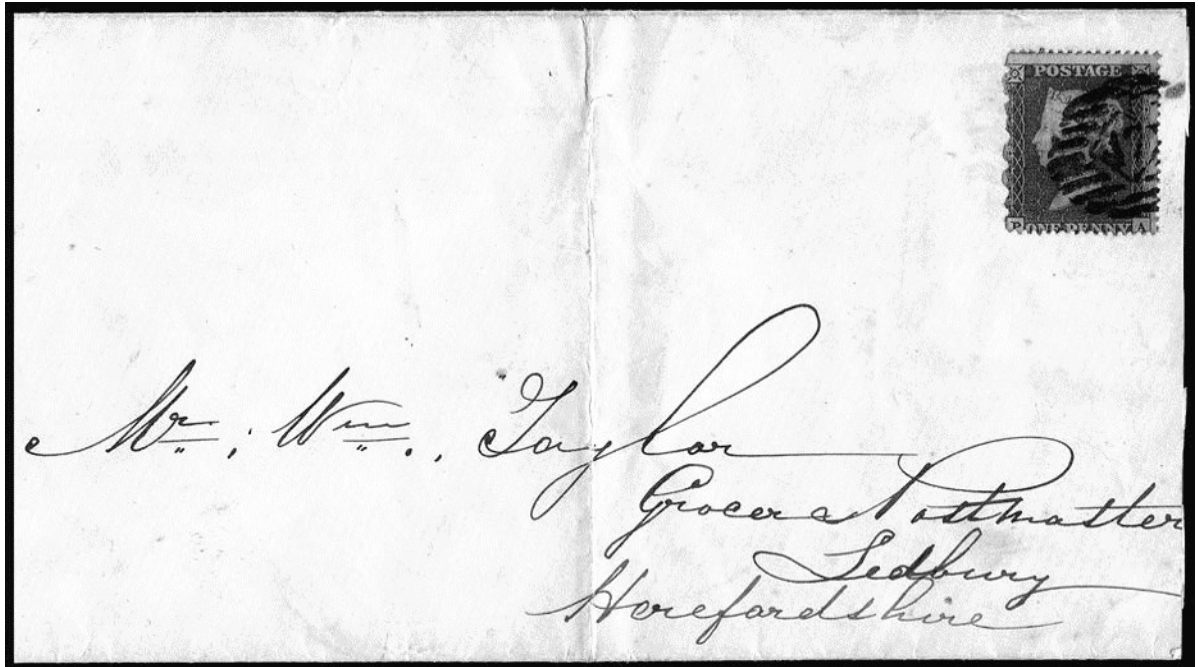 POSTAGE
P ONE PENNY A
Mr ; Wm . , Taylor
Grocer & Postmaster
Ledbury
Herefordshire